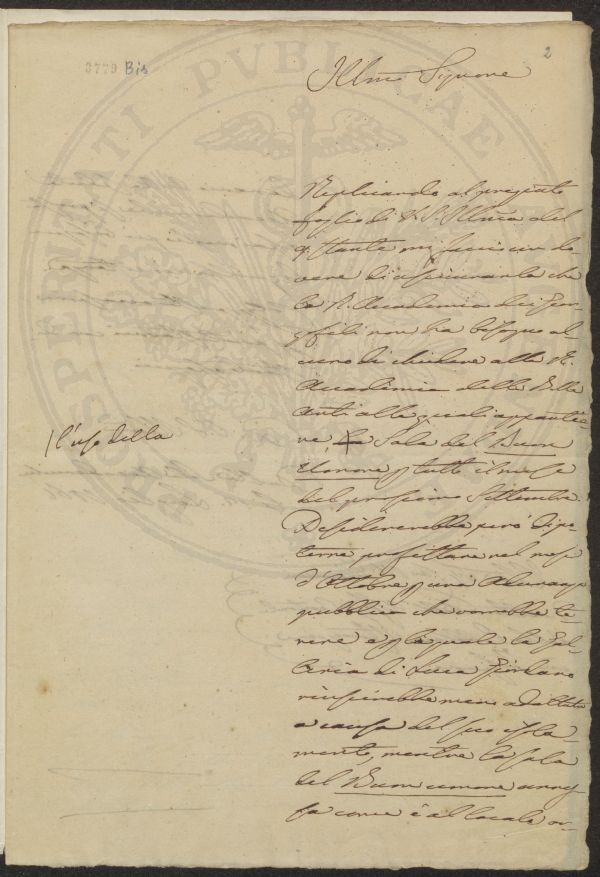 3779 Bis
2
Illmo Signore
Replicando al pregiato
foglio di V. S. Illma del
stante mi faccio un do-
vere di assicurarla che
la R. Accademia dei Geor-
gofili non ha bisogno al-
cuno di chiedere alla R.
Accademia delle Belle
Arti alle quali appartie-
ne la Sala del Buon
l'uso della
umore p tutto il mese
del prossimo Settembre.
Desidererebbe però di po-
terne profittare nel mese
d'Ottobre p una Adunanza
pubblica che vorrebbe te-
nere e p la quale la Gal-
leria di Luca Giordano
riuscirebbe meno adattata
a causa del suo isola-
mento, mentre la sala
del Buon umore
come è al locale or-